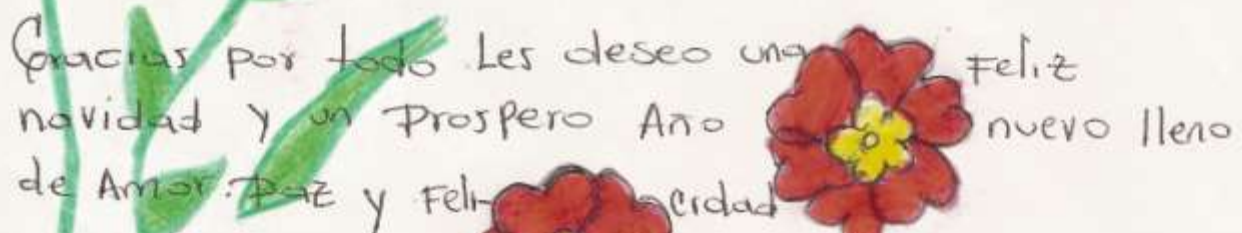 Gracias por todo Les deseo una Feliz
navidad y un Prospero Año nuevo lleno
de Amor. Paz y Feli-cidad